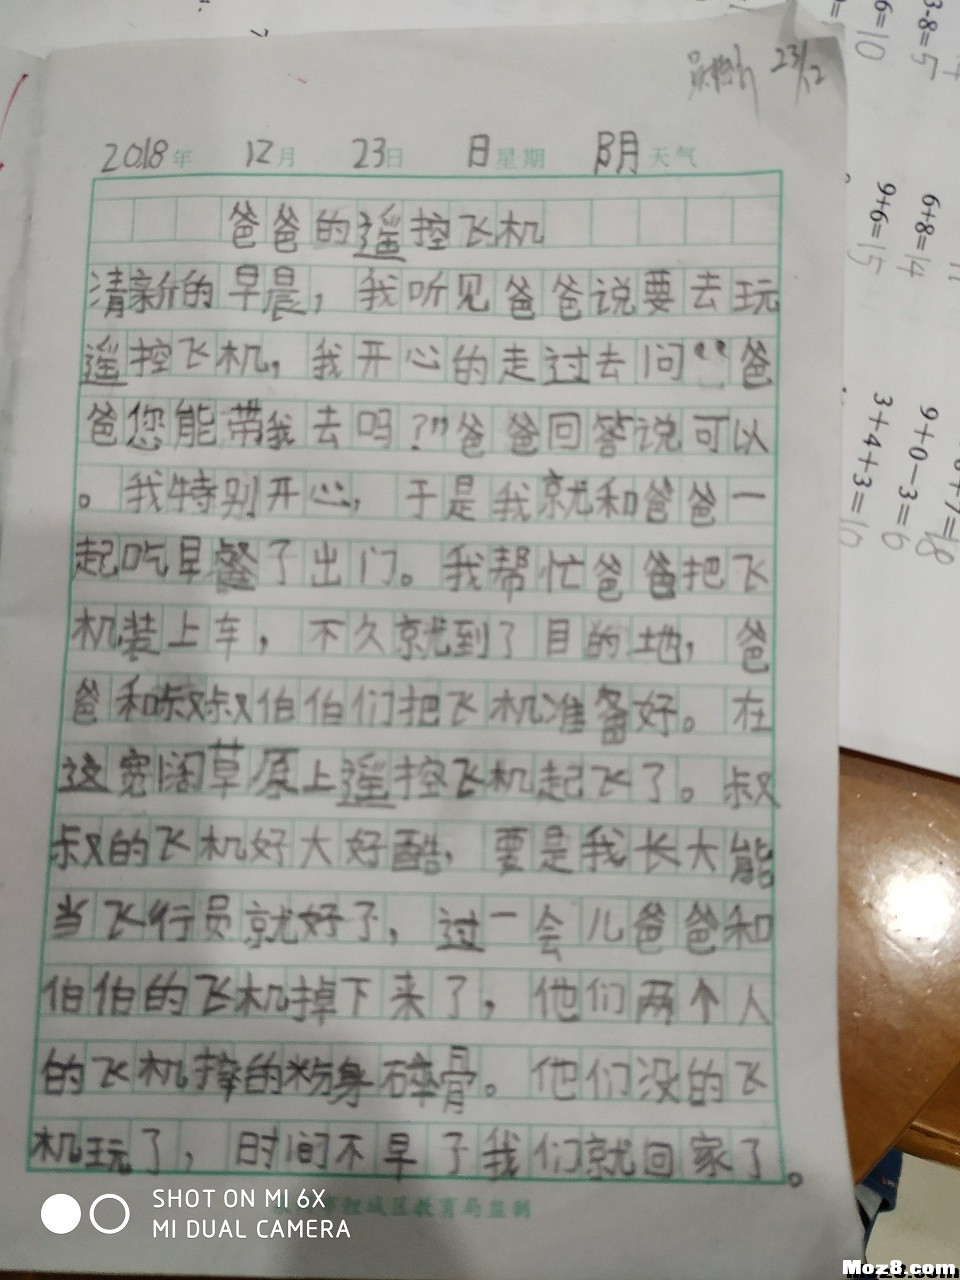 23/12
2018年 12月 23日 日星期 阴天气
爸爸的遥控飞机
清新的早晨，我听见爸爸说要去玩
遥控飞机，我开心的走过去问“爸
爸您能带我去吗?”爸爸回答说可以
。我特别开心，于是我就和爸爸一
起吃早餐了出门。我帮忙爸爸把飞
机装上车，不久就到了目的地，爸
爸和叔叔伯伯们把飞机准备好。在
这宽阔草原上遥控飞机起飞了。叔
叔的飞机好大好酷，要是我长大能
当飞行员就好了，过一会儿爸爸和
伯伯的飞机掉下来了，他们两个人
的飞机摔的粉身碎骨。他们没的飞
机玩了，时间不早了我们就回家了。
城区教育局监制
3-8=5
6=10
6+8=14
9+6=15
9+0-3=6
3+4+3=10
+7=18
SHOT ON MI 6X
MI DUAL CAMERA
Moz8.com